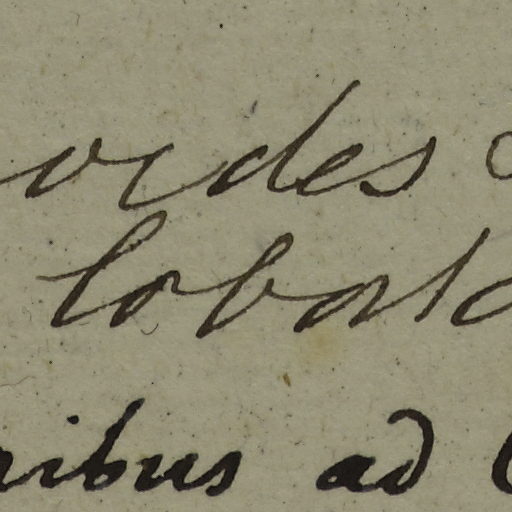 oides
lobata
ribus ad